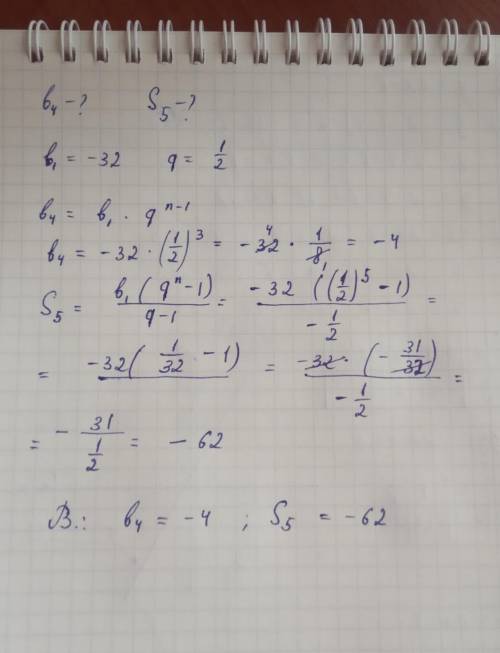 b₄ - ? S₅ - ?
b₁ = -32 q = 1/2
b₄ = b₁ · qⁿ⁻¹
b₄ = -32 · (1/2)³ = -32 4 · 1/8 1 = -4
S₅ = b₁(qⁿ-1)/q-1 = -32((1/2)⁵-1)/-1/2 =
= -32(1/32 - 1) = -32 · (-31/32)/-1/2 =
= - 31/1/2 = -62
В.: b₄ = -4 ; S₅ = -62